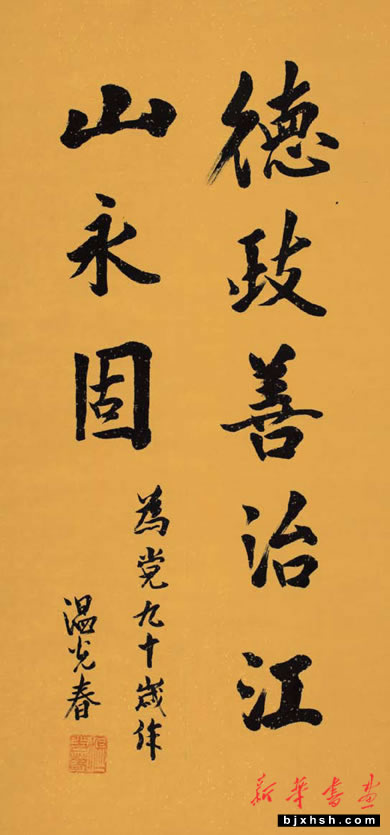 德政善治江
山永固
為党九十歲作
温光春
新華書畫
bjxhsh.com